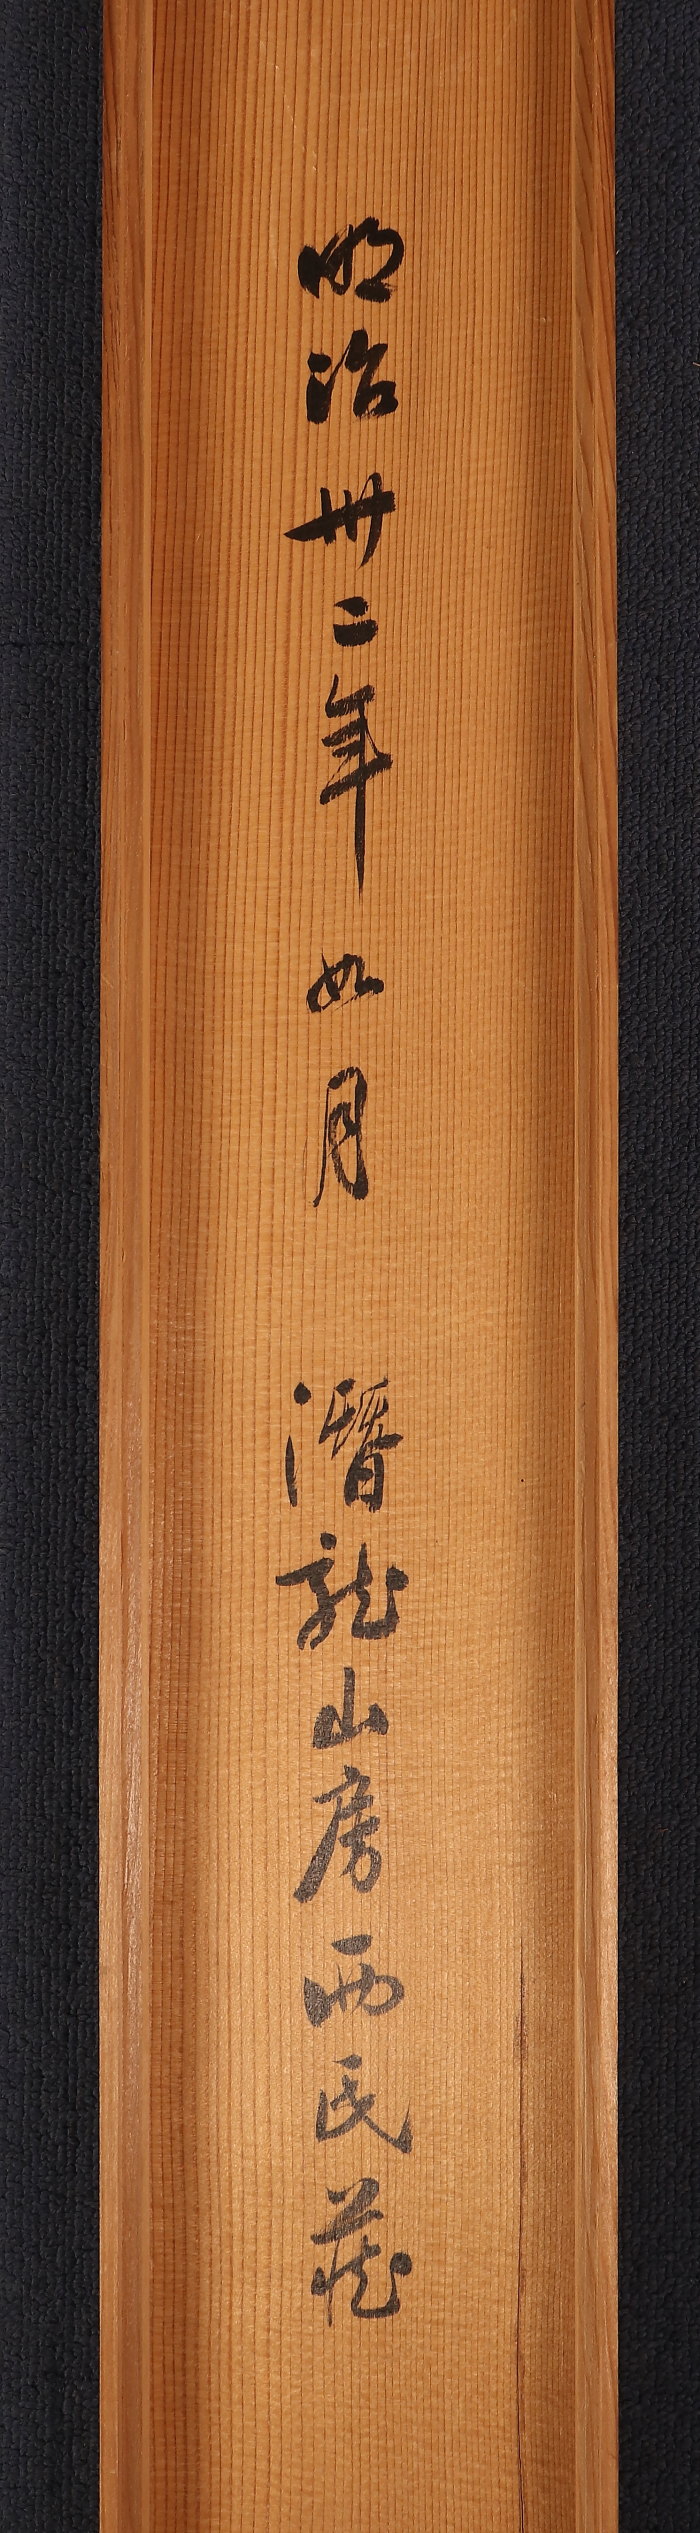 明治卅二年如月　潛龍山房西氏蔵